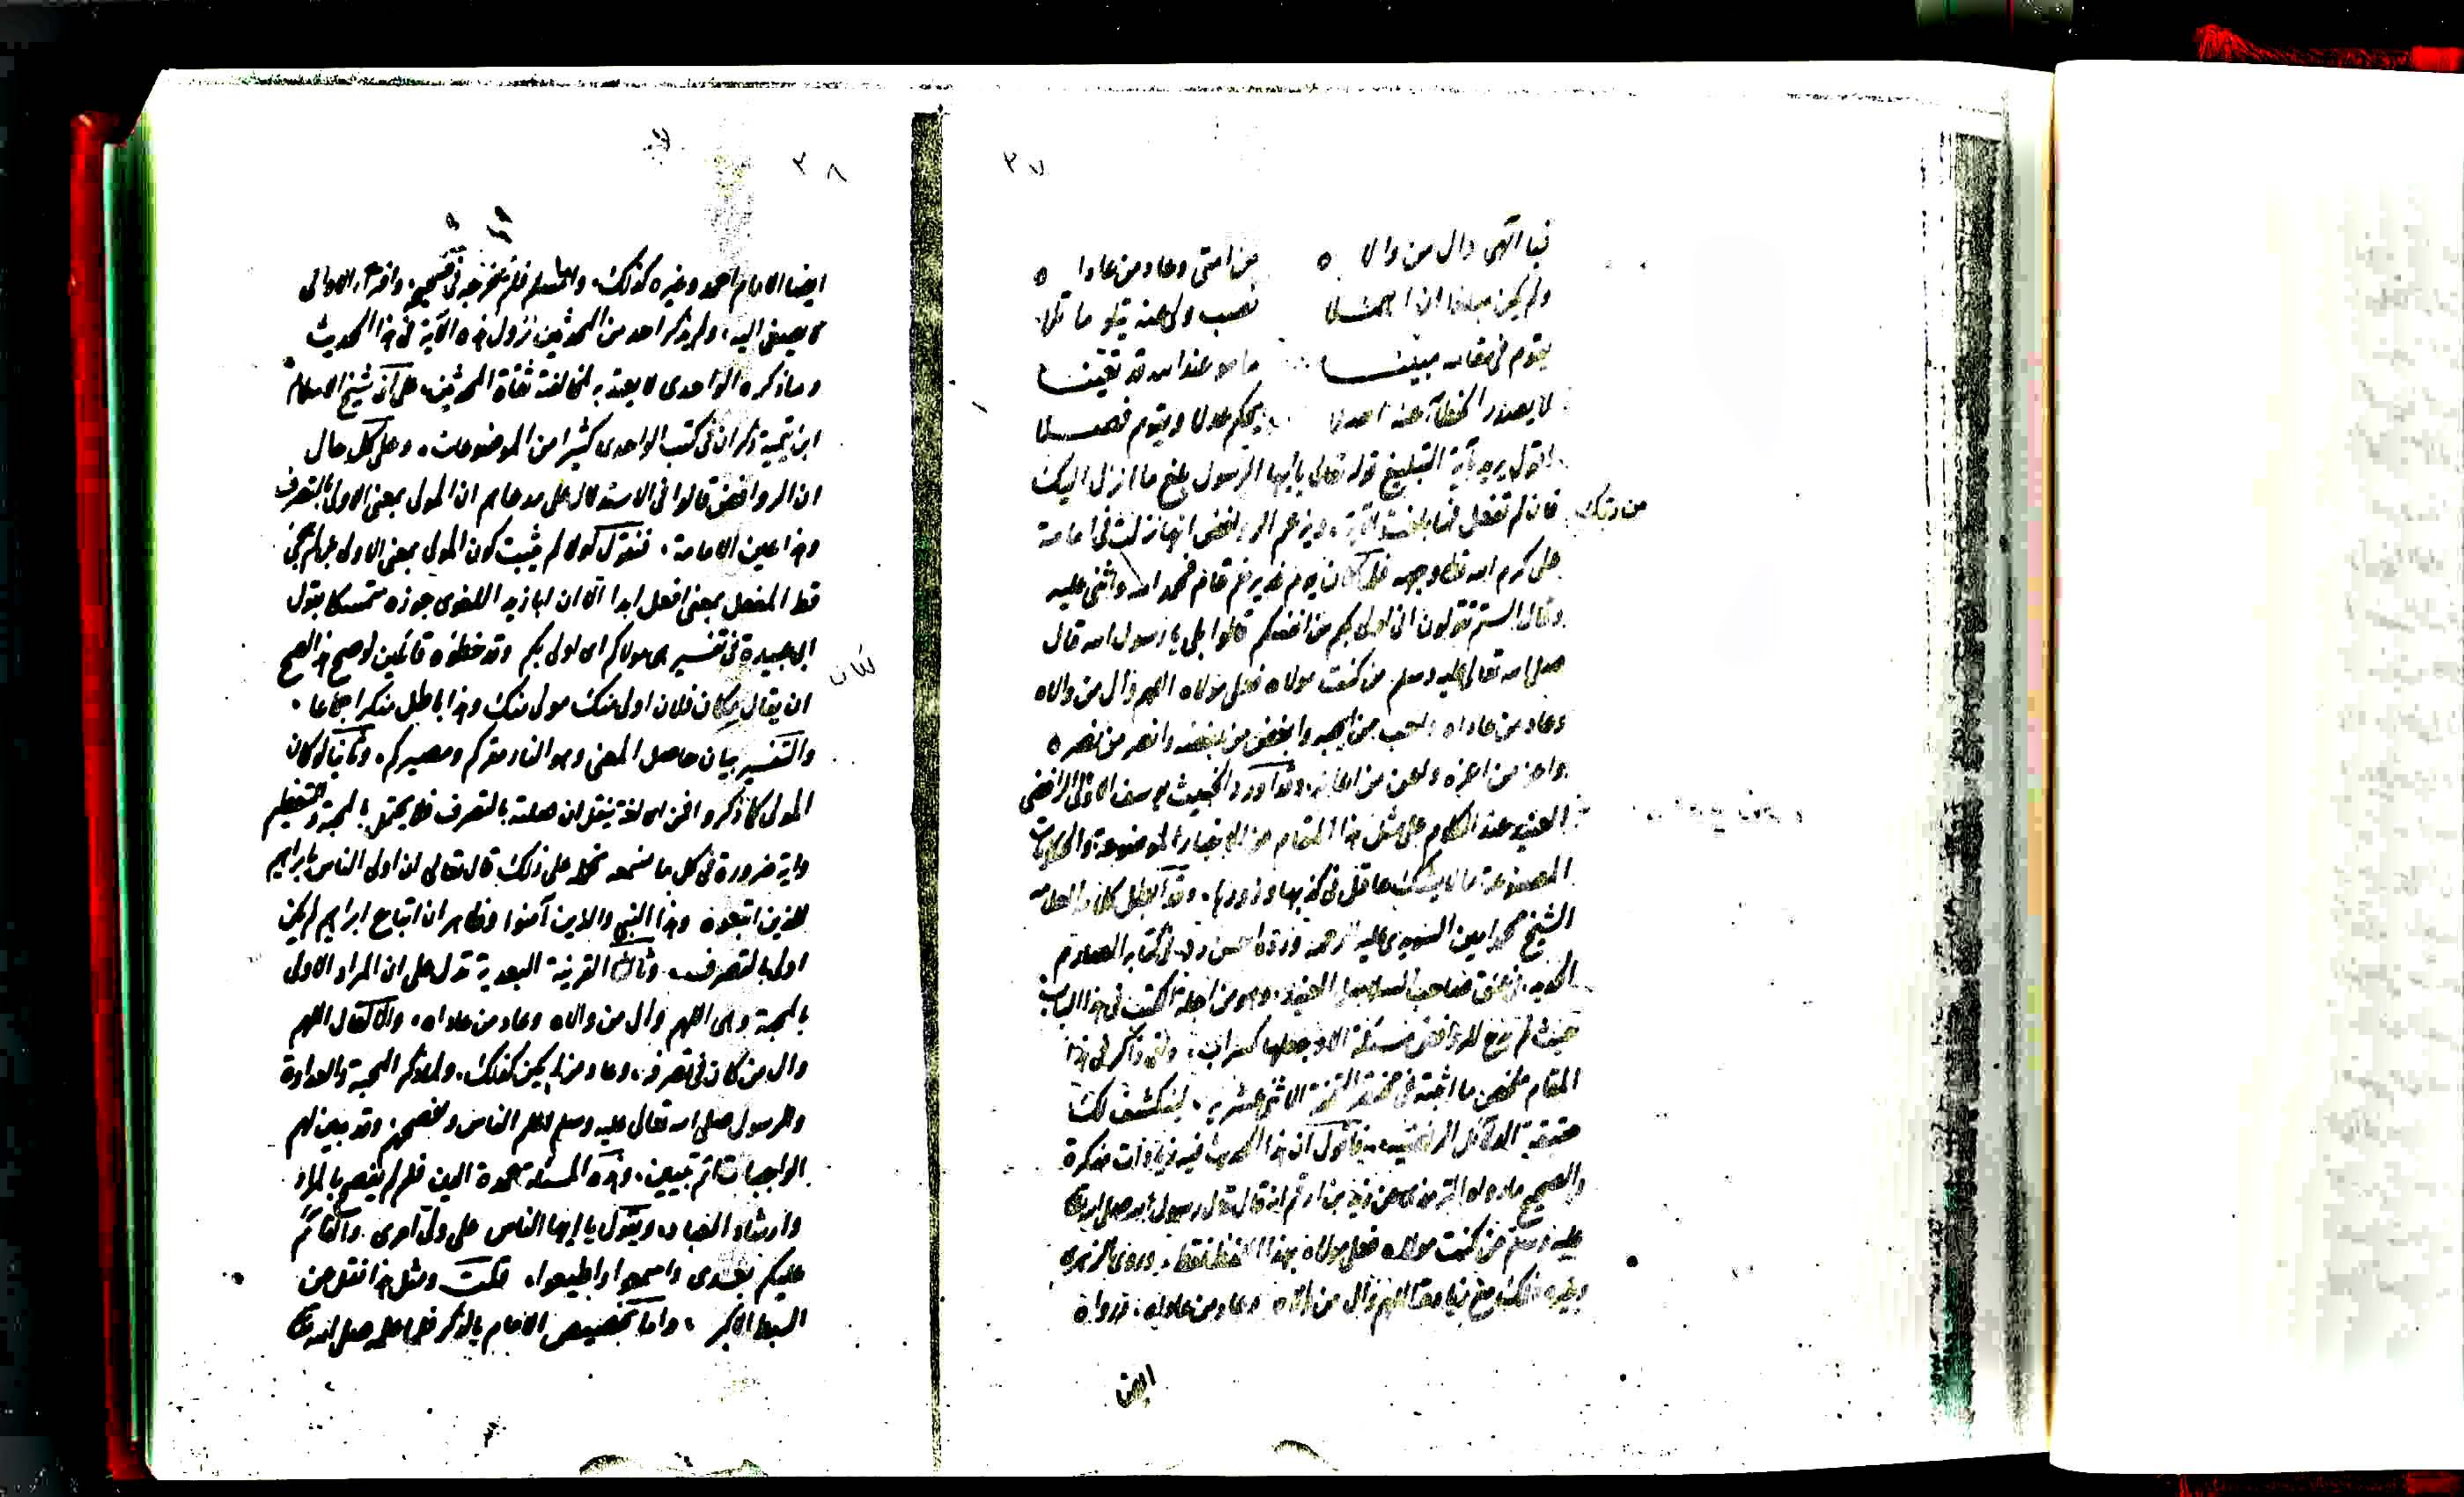 ٢٧
فيا الهي وال من والا ٥ من امتي وعاد من عادا ٥
ولم يكن مبلغا ان اهملا نصب ولي عنه يتلو ما تلا
يقوم في مقامه مبينا ما هو عند الله قد تعينا
لا يصدر الخطأ عنه اصلا يحكم عدلا ويقوم فصلا
اقول يريد بآية التبليغ قوله تعالى يا أيها الرسول بلغ ما انزل اليك
من ربك
فان لم تفعل فما بلغت الآية، ويزعم الروافض انها نزلت في امامة
علي كرم الله تعالى وجهه فلما كان يوم غدير خم قام فحمد الله واثنى عليه
وقال ألستم تقولون اني اولى بكم من انفسكم قالوا بلى يا رسول الله قال
صلى الله تعالى عليه وسلم من كنت مولاه فعلي مولاه اللهم وال من والاه
وعاد من عاداه واحب من احبه وابغض من بغضه وانصر من نصره
واعز من اعزه واعن من اعانه، وقد أورد الخبيث يوسف الاوالي الرافضي
العنيد عند الكلام على مثل هذا المقام من الاخبار الموضوعة والحكايات
المصنوعة ما لا يشك عاقل في كذبها وزورها، وقد ابطل كلامه العلامه
الشيخ محمد امين السويدي عليه الرحمة ورده احسن رد في كتابه الصارم
الحديد، في عنق صاحب سلاسل الحديد، وهو من اجلة الكتب في هذا الباب
حيث لم يدع للروافض مسئلة الا وجعلها كسراب، وانى ذاكر في هذا
المقام ملخص ما اثبته في مختصر التحفة الاثنى عشرية، لينكشف لك
حقيقة الدلائل الرافضية، فأقول ان هذا الحديث فيه زيادات منكرة
والصحيح ما رواه الترمذي عن زيد بن ارقم انه قال قال رسول الله صلى الله تع
عليه وسلم من كنت مولاه فعلي مولاه بهذا اللفظ فقط، وروى الزهري
وغيره ذلك مع زيادة اللهم وال من والاه وعاد من عاداه، ورواه
ايضا
٢٨
ايضا الامام احمد وغيره كذلك، واما مسلم فلم يخرجه في صحيحه، وافتراء الاوالي
لا يصغى اليه، ولم يذكر احد من المحدثين نزول هذه الآية في هذا الحديث
وما ذكره الواحدي لا يعتد به لمخالفته ثقاة المحدثين، على أن شيخ الاسلام
ابن تيمية ذكر ان في كتب الواحدي كثيرا من الموضوعات، وعلى كل حال
ان الروافض قالوا في الاستدلال على مدعاهم ان المولى بمعنى الاولى بالتصرف
وهذا عين الامامة، فنقول اولا لم يثبت كون المولى بمعنى الاولى بل لم يجئ
قط المفعل بمعنى افعل ابدا الا ان ابا زيد اللغوي جوزه متمسكا بقول
ابي عبيدة في تفسير هي مولاكم اي اولى بكم وقد خطؤه قائلين لو صح هذا لصح
ان يقال مكان فلان اولى منك مولى منك وهذا باطل منكر اجماعا،
مكان
والتفسير بيان حاصل المعنى وهو النار مقركم ومصيركم، وثانيا لو كان
المولى كما ذكروا فمن اي لغة ينقل ان صلته بالتصرف فلا يحتمل بالمحبة والتعظيم
واية ضرورة في كل ما نسمعه نحمله على ذلك قال تعالى ان اولى الناس بابراهيم
للذين اتبعوه وهذا النبي والذين آمنوا وظاهر ان اتباع ابراهيم لم يكن
اولى بالتصرف، وثالثا القرينة البعدية تدل على ان المراد الاولى
بالمحبة وهي اللهم وال من والاه وعاد من عاداه، والا لقال اللهم
وال من كان في تصرفه، وعاد من لم يكن كذلك، ولما ذكر المحبة والعداوة
والرسول صلى الله تعالى عليه وسلم اعلم الناس وافصحهم وقد بين لهم
الواجبات اتم تبيين، وهذه المسئلة عمدة الدين فلم لم يفصح بالمراد
وارشاد العباد، ويقول يا ايها الناس علي ولي أمري، والقائم
عليكم بعدي واسمعوا واطيعوا، قلت ومثل هذا نقل عن
السبط الاكبر، واما تخصيص الامام بالذكر فلما علمه صلى الله تع